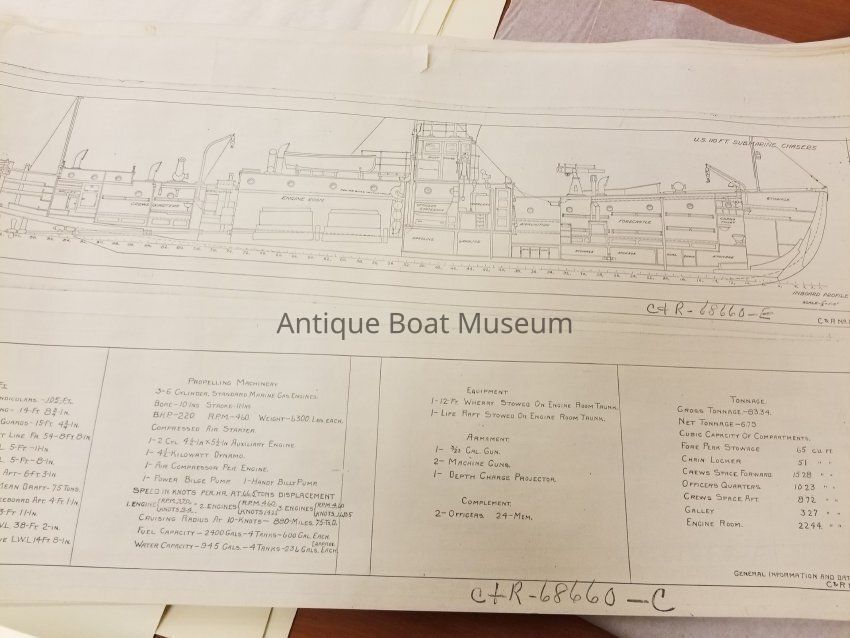 U.S. 110 FT. SUBMARINE CHASERS
STORAGE
CREWS QUARTERS
ENGINE ROOM
OFFICERS QUARTERS
GASOLINE
GASOLINE
AMMUNITION
FORECASTLE
STORAGE
STORAGE
INBOARD PROFILE
C & R No
C&R-68660-E
Antique Boat Museum
-105-FT.
14-FT 8¾-IN.
GUARDS-15FT 4¾-IN.
5-FT-8-IN.
APT-6FT 3-IN
MEAN DRAFT-75 TONS.
3-FT 11-IN
38-FT 2-IN.
L.W.L 14FT 8-IN.
PROPELLING MACHINERY
3-6 CYLINDER, STANDARD MARINE GAS ENGINES.
BORE-10 INS STROKE-11 INS
BHP-220 R.P.M-460. WEIGHT-6300 LBS EACH.
COMPRESSED AIR STARTER.
1-2 CYL 4½-IN X 5½-IN AUXILIARY ENGINE.
1-4½-KILOWATT DYNAMO.
1-AIR COMPRESSOR PER ENGINE.
1-POWER BILGE PUMP 1-HANDY BILLY PUMP.
SPEED IN KNOTS PER. HR. AT 66.5 TONS DISPLACEMENT
1. ENGINE 2. ENGINES 3 ENGINES
CRUISING RADIUS AT 10-KNOTS-880-MILES. 75-TS.D.
FUEL CAPACITY-2400 GALS-4 TANKS-600 GAL EACH.
WATER CAPACITY-945 GALS.-4 TANKS-236 GALS. EACH.
EQUIPMENT
1-12-FT. WHERRY STOWED ON ENGINE ROOM TRUNK.
1-LIFE RAFT STOWED ON ENGINE ROOM TRUNK.
ARMAMENT.
1- 3/23 CAL GUN.
2-MACHINE GUNS.
1-DEPTH CHARGE PROJECTOR.
COMPLEMENT.
2-OFFICERS. 24-MEN.
TONNAGE.
GROSS TONNAGE-83.34.
NET TONNAGE-67.5
CUBIC CAPACITY OF COMPARTMENTS.
FORE PEAK STOWAGE 65 CU FT
CHAIN LOCKER 51 " "
CREWS SPACE FORWARD. 1528 " "
OFFICERS QUARTERS. 1023 " "
CREWS SPACE AFT. 872 " "
GALLEY 327 " "
ENGINE ROOM. 2244. " "
GENERAL INFORMATION AND DAT
C&R
C&R-68660-C